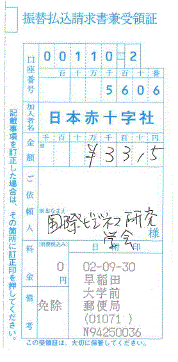 振替払込請求書兼受領証
口座番号
百 十 万 千 百 十 番
00110 2
千 百 十 万 千 百 十 番
5606
加入者名
日本赤十字社
金額
千 百 十 万 千 百 十 円
¥3315
ご依頼人
おなまえ
国際ビジネス研究
学会
様
料金
(消費税込み)
0
円
日附印
02-09-30
早稲田
大学前
郵便局
(01071 )
N94250036
備考
免除
この受領証は、大切に保管してください。
記載事項を訂正した場合は、その箇所に訂正印を押してください。